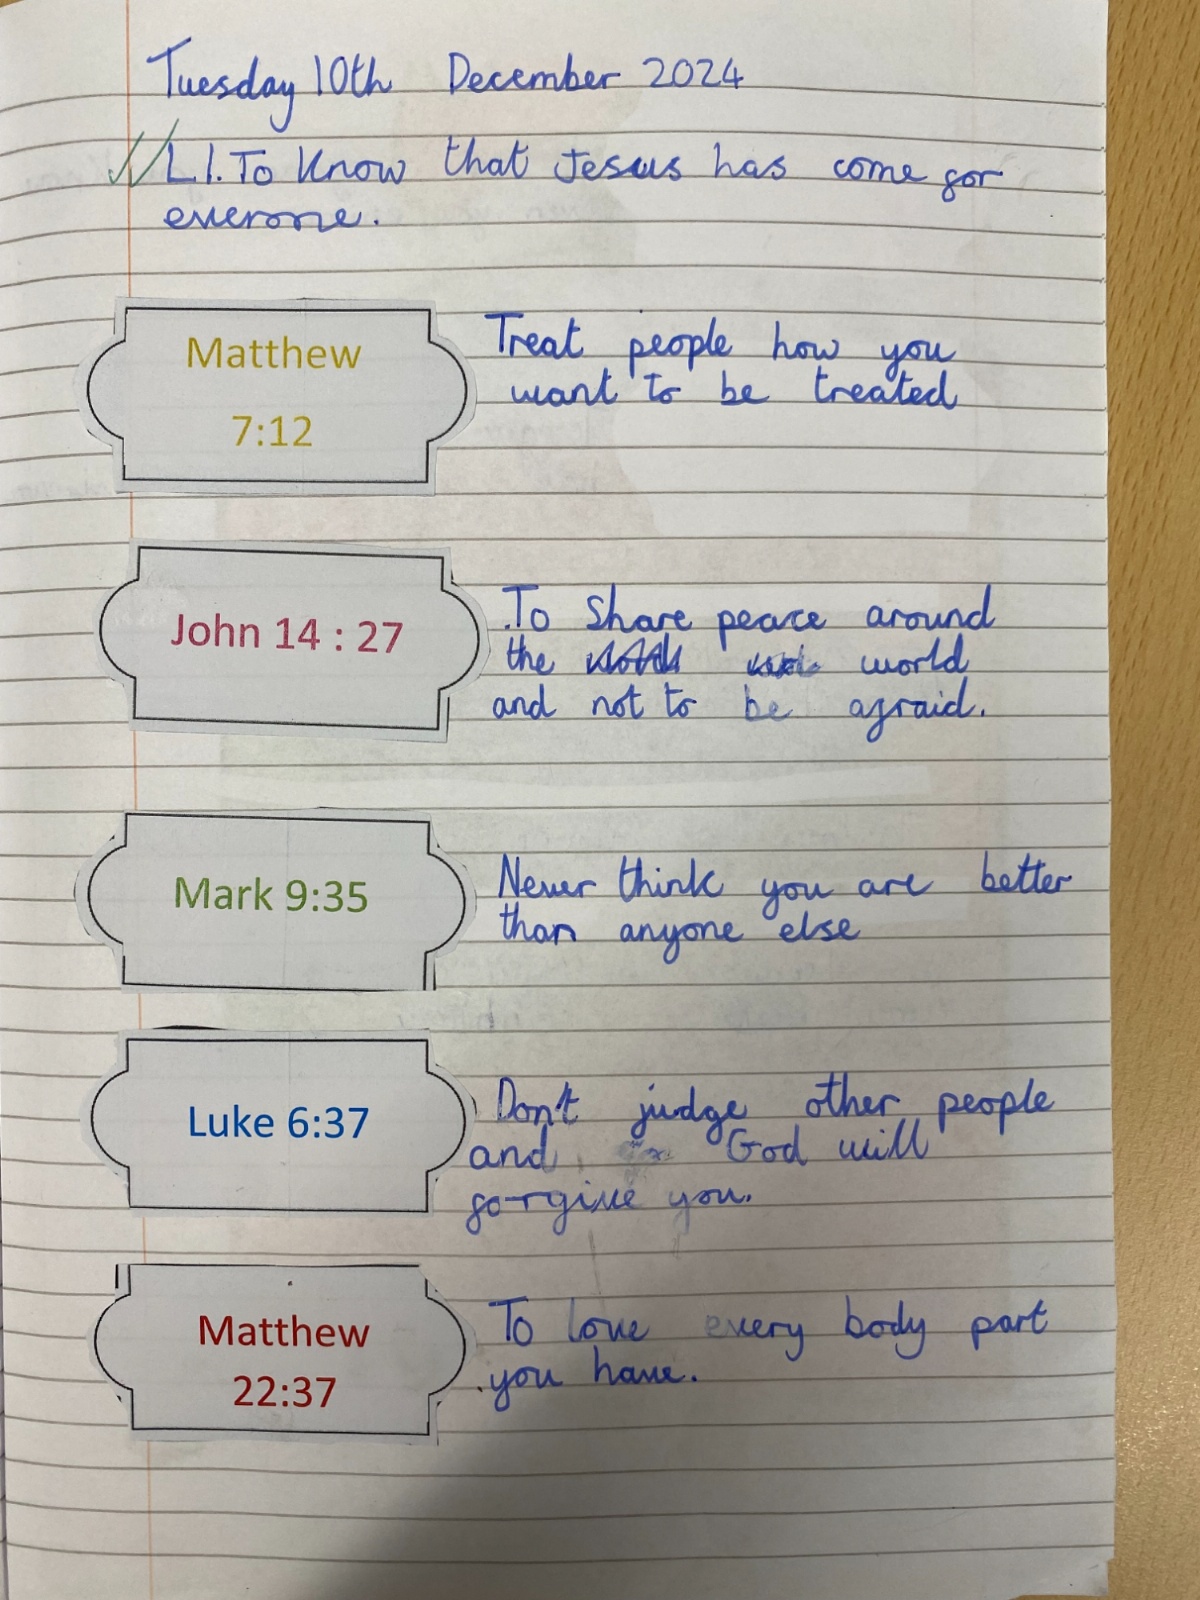 Tuesday 10th December 2024
L.I. To Know that Jesus has come for
everone.
Matthew
7:12
Treat people how you
want to be treated
John 14 : 27
To Share peace around
the world
and not to be afraid.
Mark 9:35
Never think you are better
than anyone else
Luke 6:37
Don't judge other people
and God will
forgive you.
Matthew
22:37
To love every body part
you have.